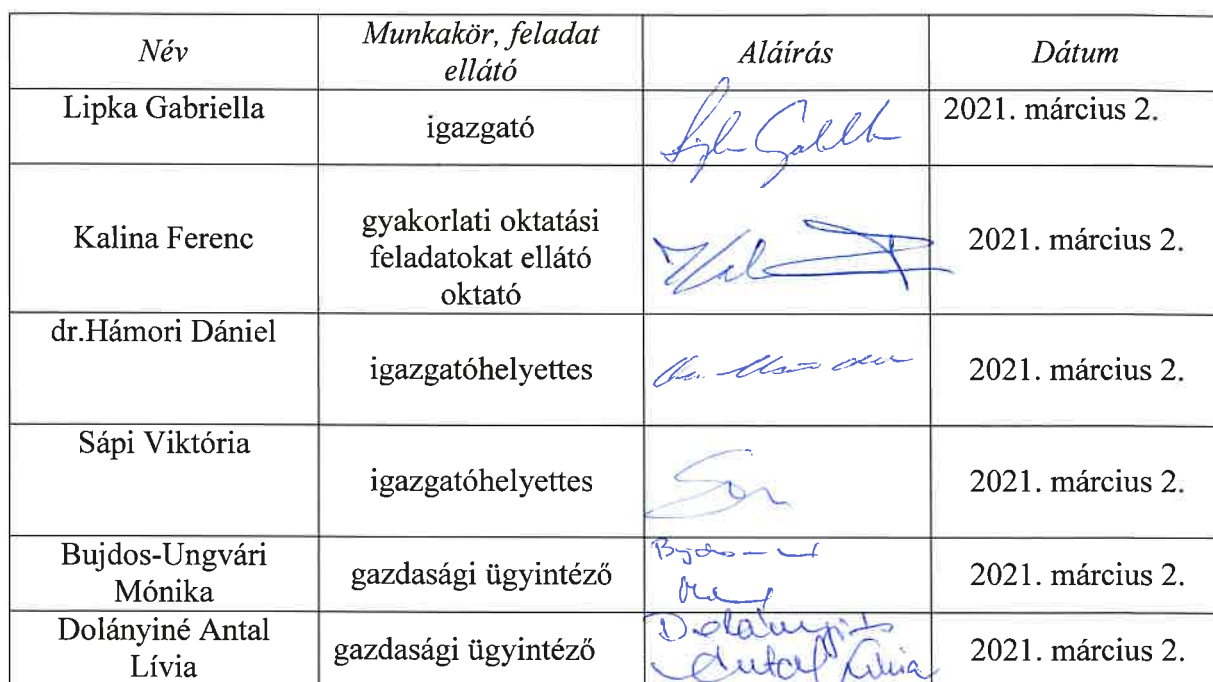 Név Munkakör, feladat ellátó Aláírás Dátum
Lipka Gabriella igazgató 2021. március 2.
Kalina Ferenc gyakorlati oktatási feladatokat ellátó oktató 2021. március 2.
dr.Hámori Dániel igazgatóhelyettes 2021. március 2.
Sápi Viktória igazgatóhelyettes 2021. március 2.
Bujdos-Ungvári Mónika gazdasági ügyintéző 2021. március 2.
Dolányiné Antal Lívia gazdasági ügyintéző Dolányiné Antal Lívia 2021. március 2.